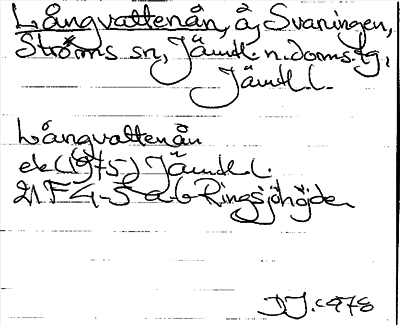 Långvattenån, å, Svaningen,
Ströms sn, Jämtl. n. doms.tg,
Jämtl. l.
Långvattenån
ek (1975) Jämtl. l.
21 F 4-5 a-b Ringsjöhöjden
DJ. 1978